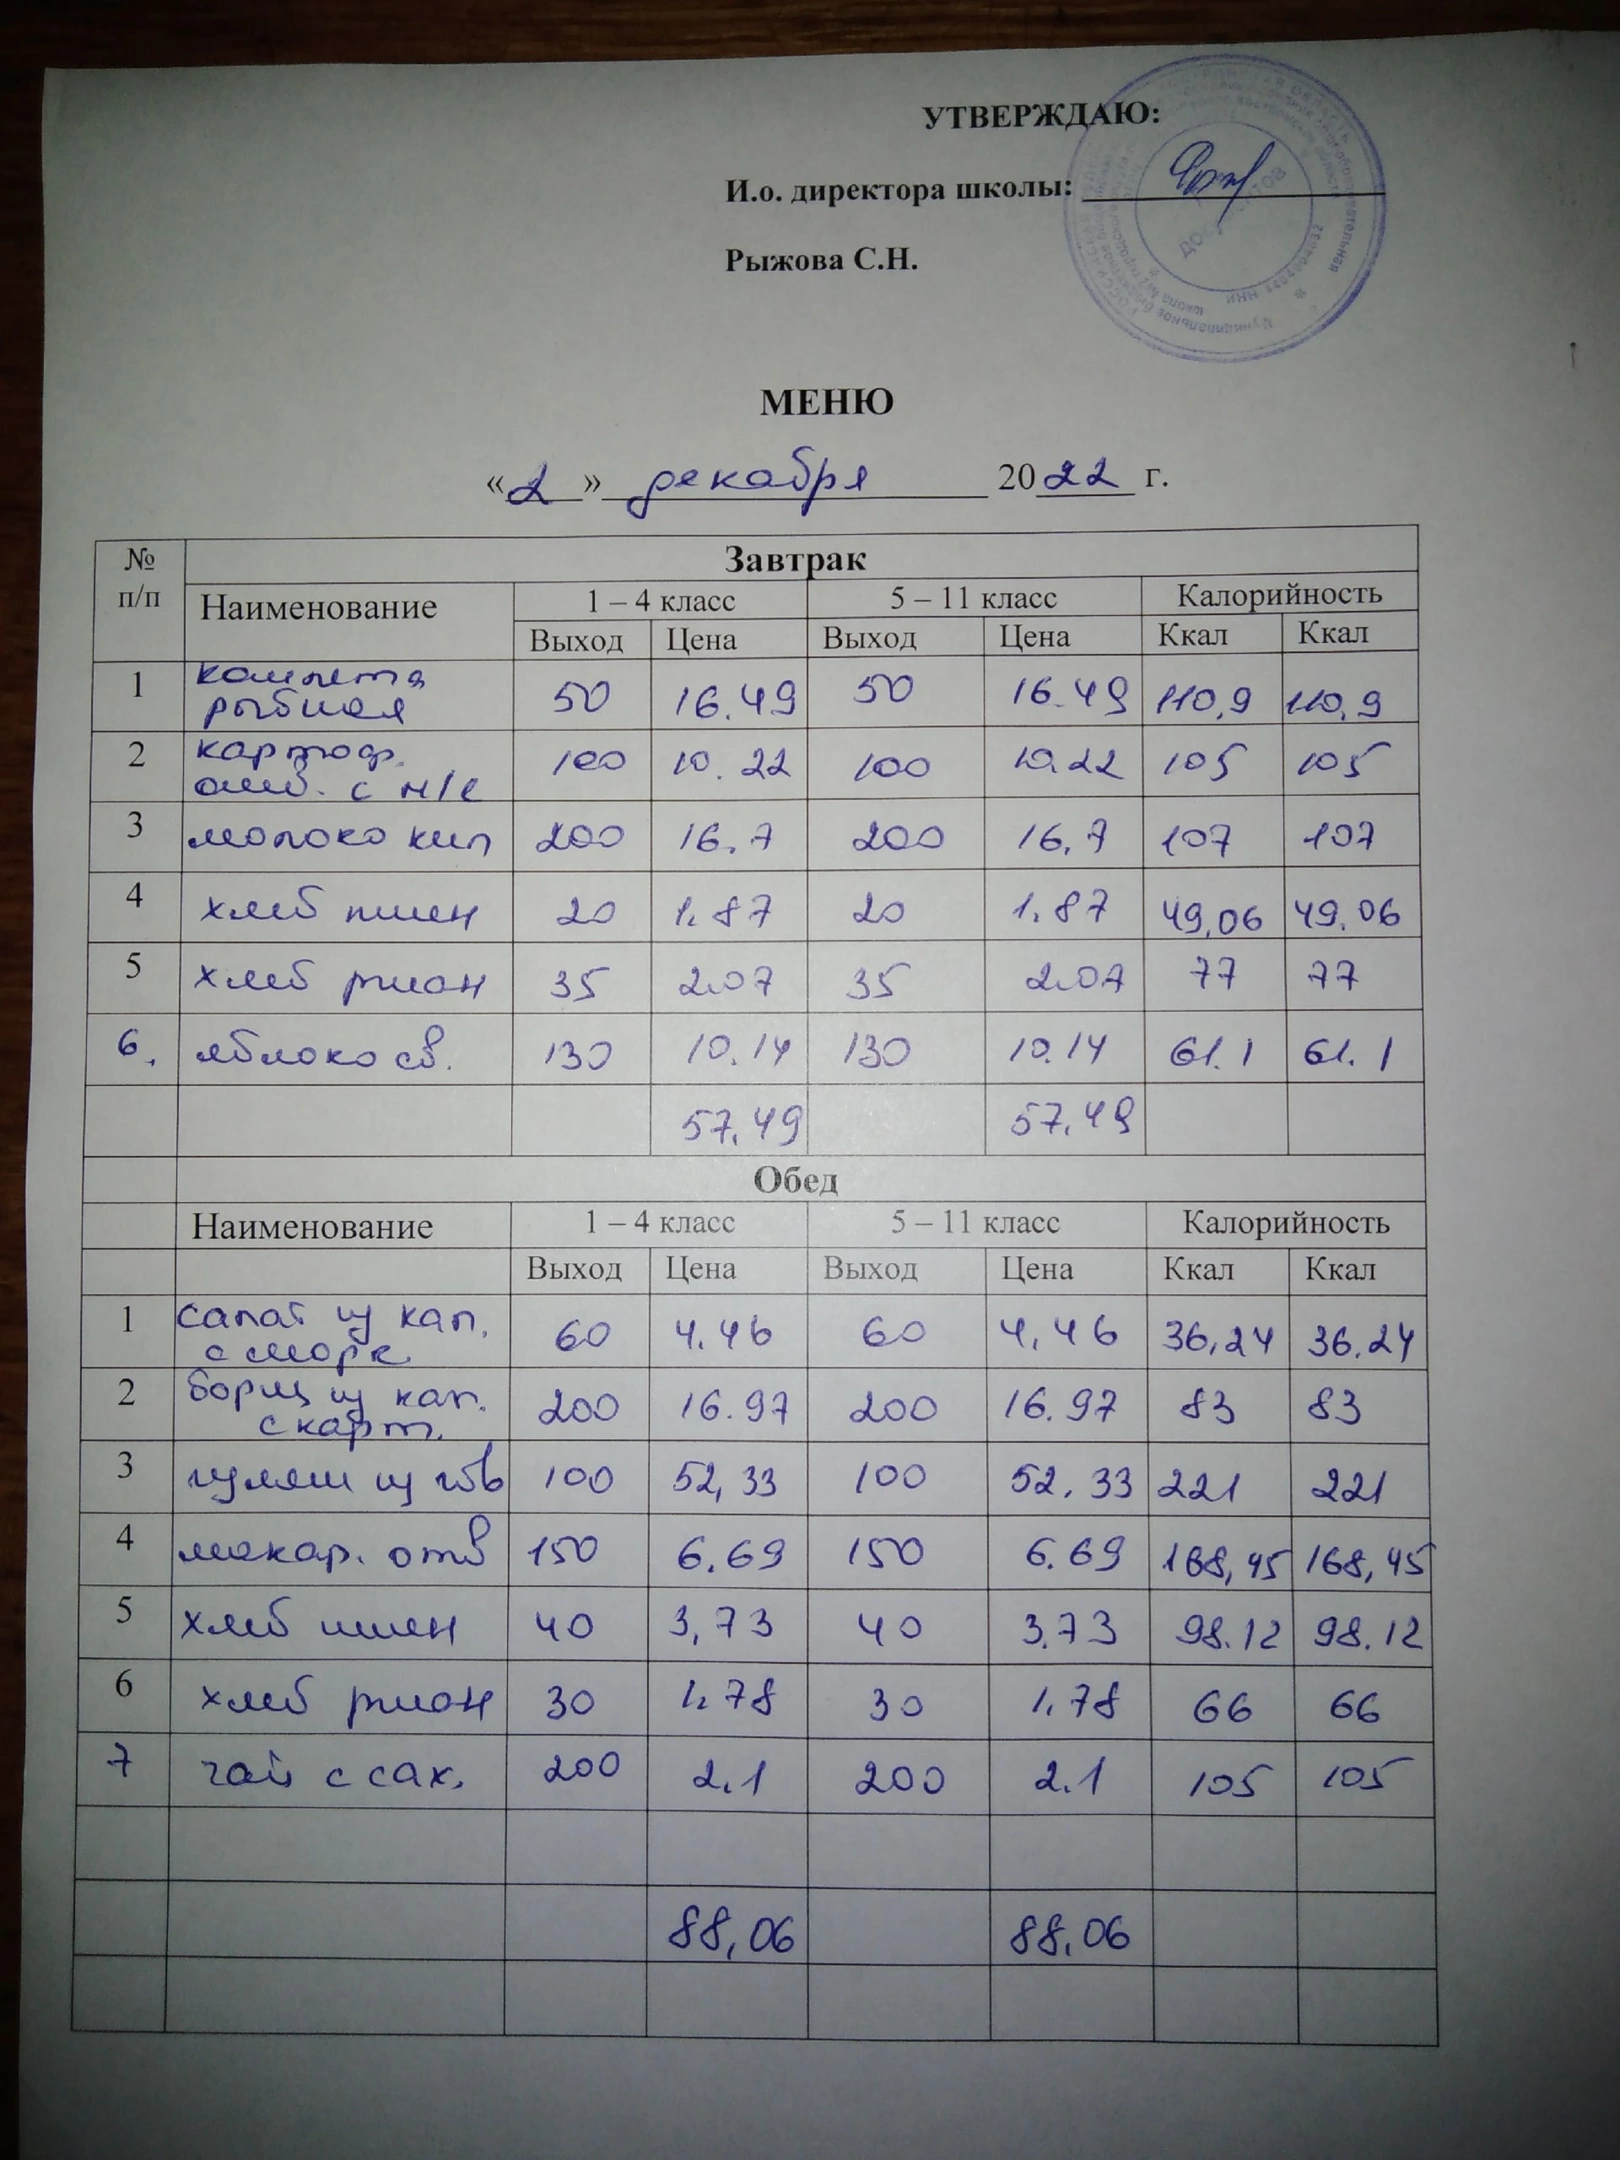 УТВЕРЖДАЮ:
И.о. директора школы:
Рыжова С.Н.
МЕНЮ
«2» декабря 2022 г.
№ п/п Завтрак
Наименование 1 – 4 класс 5 – 11 класс Калорийность
Выход Цена Выход Цена Ккал Ккал
1 котлета рыбная 50 16.49 50 16.49 110,9 110,9
2 картоф. отв. с м/с 100 10.22 100 10.22 105 105
3 молоко кип 200 16.7 200 16,7 107 107
4 хлеб пшен 20 1.87 20 1.87 49,06 49.06
5 хлеб ржан 35 2.07 35 2.07 77 77
6. яблоко св. 130 10.14 130 10.14 61.1 61.1
57.49 57.49
Обед
Наименование 1 – 4 класс 5 – 11 класс Калорийность
Выход Цена Выход Цена Ккал Ккал
1 салат из кап. с морк 60 4.46 60 4,46 36,24 36.24
2 борщ из кап. с карт. 200 16.97 200 16.97 83 83
3 гуляш из гов 100 52,33 100 52.33 221 221
4 макар. отв 150 6.69 150 6.69 168,45 168,45
5 хлеб пшен 40 3,73 40 3.73 98.12 98.12
6 хлеб ржан 30 1.78 30 1.78 66 66
7 чай с сах. 200 2.1 200 2.1 105 105
88,06 88.06